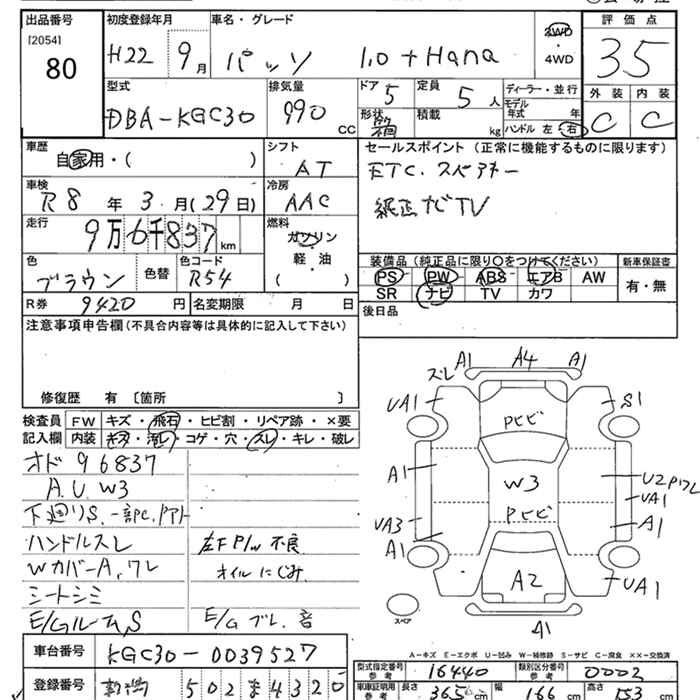 出品番号
[2054]
80
初度登録年月
H22 9月
車名・グレード
パッソ 1.0 + Hana
2WD
・
4WD
評価点
3.5
外装 内装
C C
型式
DBA-KGC30
排気量
990 CC
ドア 5
形状
定員 5 人
積載 kg
ディーラー・並行
モデル年式 年
ハンドル 左・右
車歴
自家用・( )
シフト
AT
セールスポイント(正常に機能するものに限ります)
ETC. スペアキー
純正ナビTV
車検
R8 年 3 月(29日)
冷房
AAC
走行
9万6千837km
燃料
ガソリン
軽・油
( )
色
ブラウン
色替
色コード
R54
装備品(純正品に限り〇をつけてください)
PS PW ABS エアB AW
SR ナビ TV カワ
新車保証書
有・無
R券 9420 円
名変期限 月 日
後日品
注意事項申告欄(不具合内容等は具体的に記入して下さい)
修復歴 有 〔箇所 〕
検査員記入欄
FW キズ・飛石・ヒビ割・リペア跡・×要
内装 キズ・汚レ・コゲ・穴・スレ・キレ・破レ
オド 96837
A.U. W3
下廻りS.一部C.
ハンドルスレ
WカバーA.ワレ
シートシミ
左F P/W 不良
オイルにじみ.
E/Gブレ.音
スレ A1 A4 A1
UA1 S1
Pヒビ
A1 W3
UA1
Pヒビ
UA3 A1
A1
A2 UA1
A1
スペア
A-キズ E-エクボ U-凹み W-補修跡 S-サビ C-腐食 ××-交換済
車台番号 KGC30-0039527
型式指定番号 参考 16440
類別区分番号 参考 0002
登録番号 新潟 502 ま 4320
車車証明用 参考 長さ 365 cm 幅 166 cm 高さ 153 cm